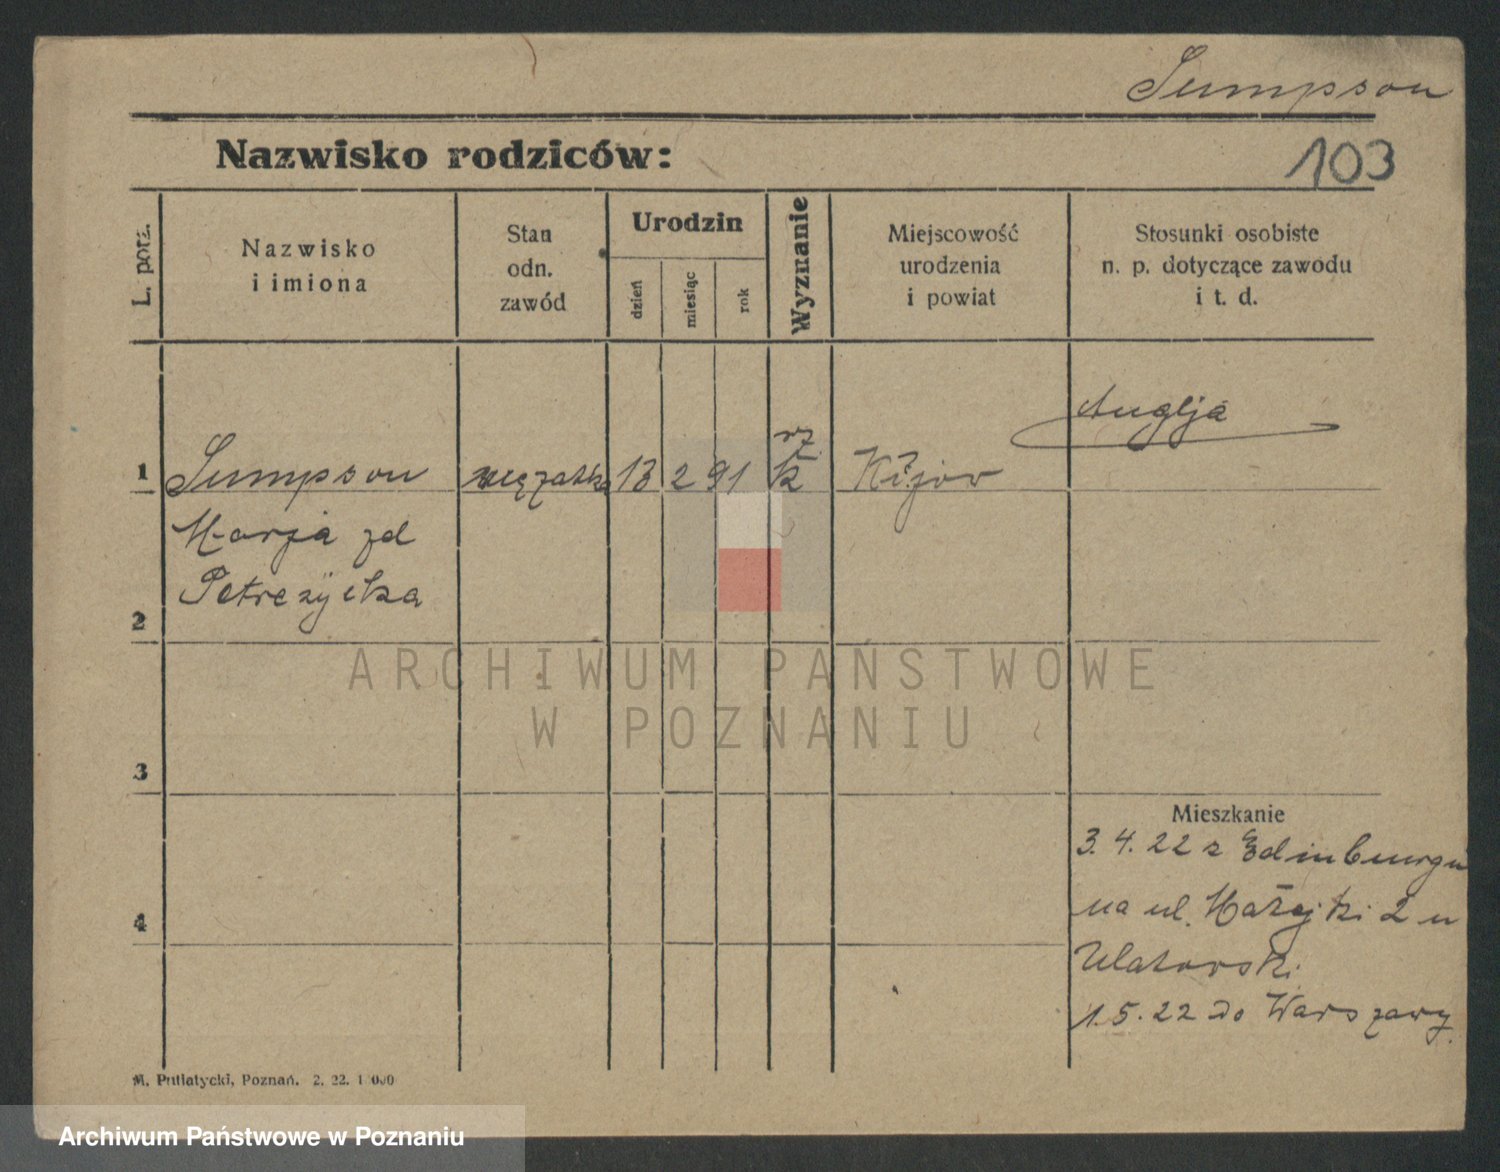 Sumpson
Nazwisko rodziców:
103
L. porz.
Nazwisko
i imiona
Stan
odn.
zawód
Urodzin
dzień
miesiąc
rok
Wyznanie
Miejscowość
urodzenia
i powiat
Stosunki osobiste
n. p. dotyczące zawodu
i t. d.
Anglja
1
Sumpson
mężatka
13
2
91
rz
k
Kijow
Marja zd
Petrczycka
2
3
4
Mieszkanie
3.4.22 z Edinburgu
na ul. Matejki 2 u
Ulatowski
1.5.22 do Warszawy.
M. Putiatycki, Poznań. 2. 22.
ARCHIWUM PAŃSTWOWE
W POZNANIU
Archiwum Państwowe w Poznaniu